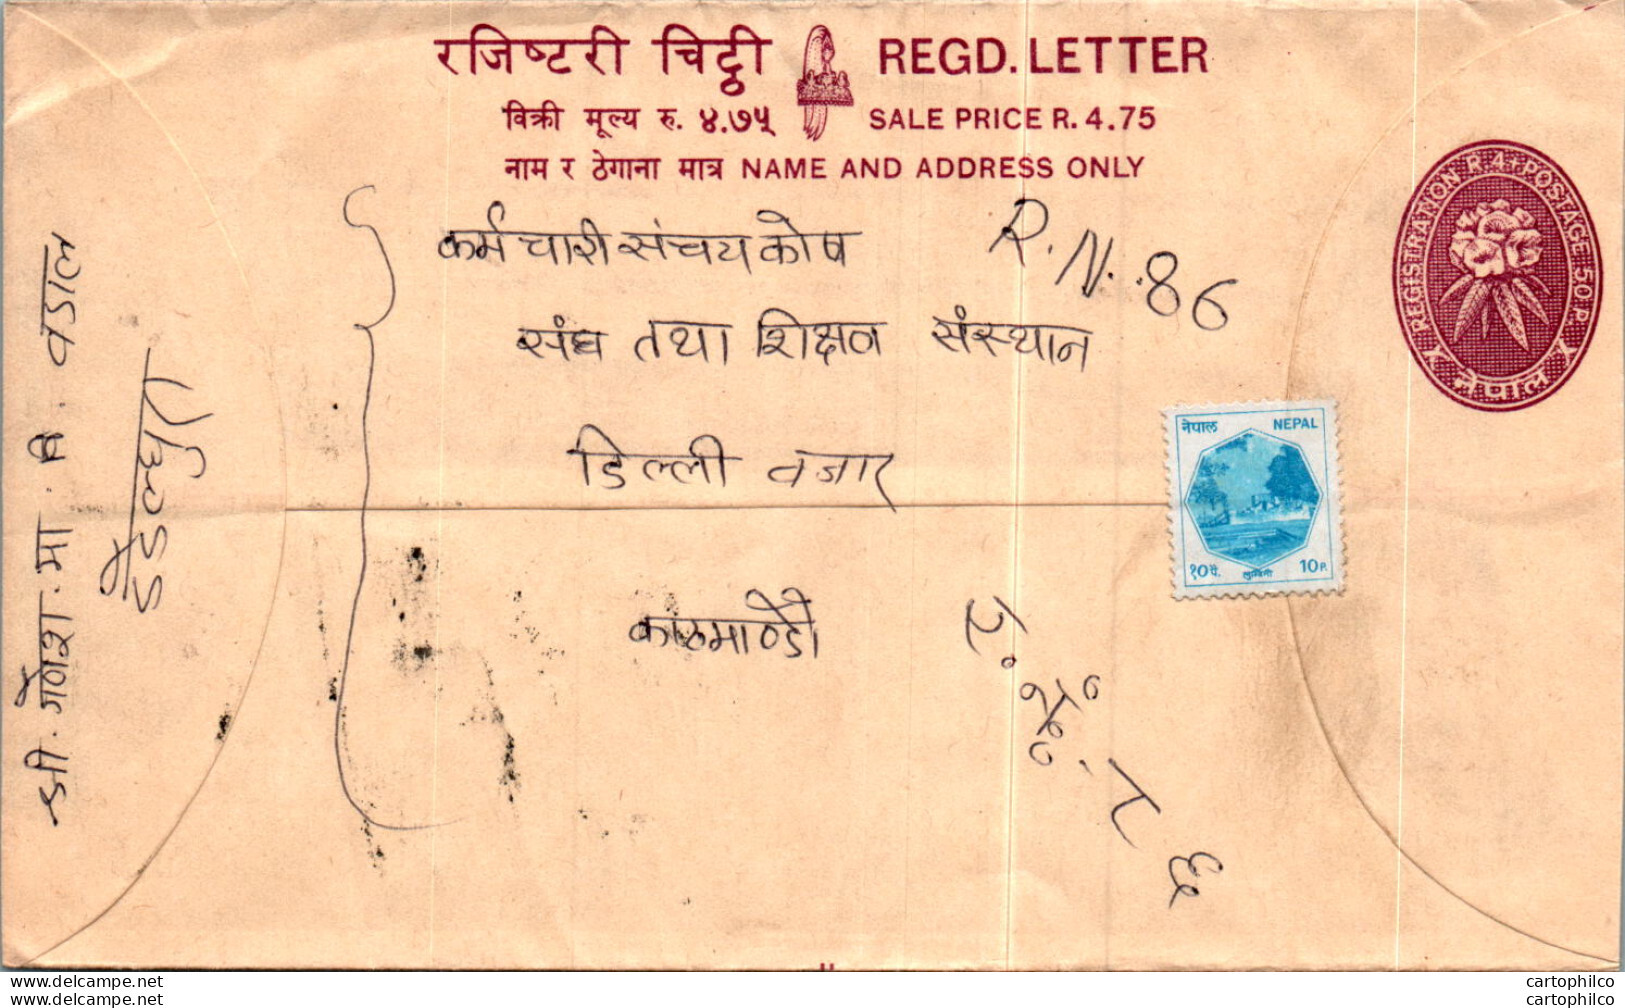 रजिष्टरी चिट्ठी REGD. LETTER
विक्री मूल्य रु. ४.७५ SALE PRICE R. 4.75
नाम र ठेगाना मात्र NAME AND ADDRESS ONLY
REGISTRATION R.4+POSTAGE 50P.
नेपाल
कर्मचारी संचय कोष
R.N. 86
संघ तथा शिक्षण संस्थान
डिल्ली वजार
काठमाण्डौ
नेपाल NEPAL
१० पै. लुम्बिनी 10 P.
श्री. गणेश. मा. वि. वडाल
डँडेल्धुरा
cartophilco
cartophilco